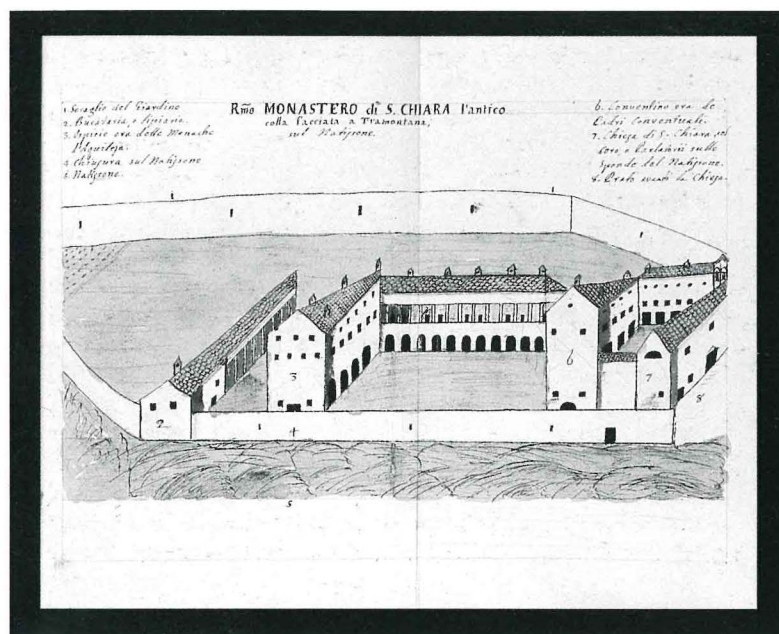 1. Seraglio del Giardino
2. Bucataria, e Lisciaria.
3. Ospizio ora delle Monache
d'Aquileja.
4. Chiusura sul Natisone
5. Natisone.
Rmo MONASTERO di S. CHIARA l'antico
colla facciata a Tramontana,
sul Natisone.
6. Conventino ora de
Padri Conventuali.
7. Chiesa di S. Chiara, col
Coro, e Parlatorii sulle
sponde del Natisone.
8. Prato avanti la Chiesa.
1
1
2
3
4
5
6
7
8